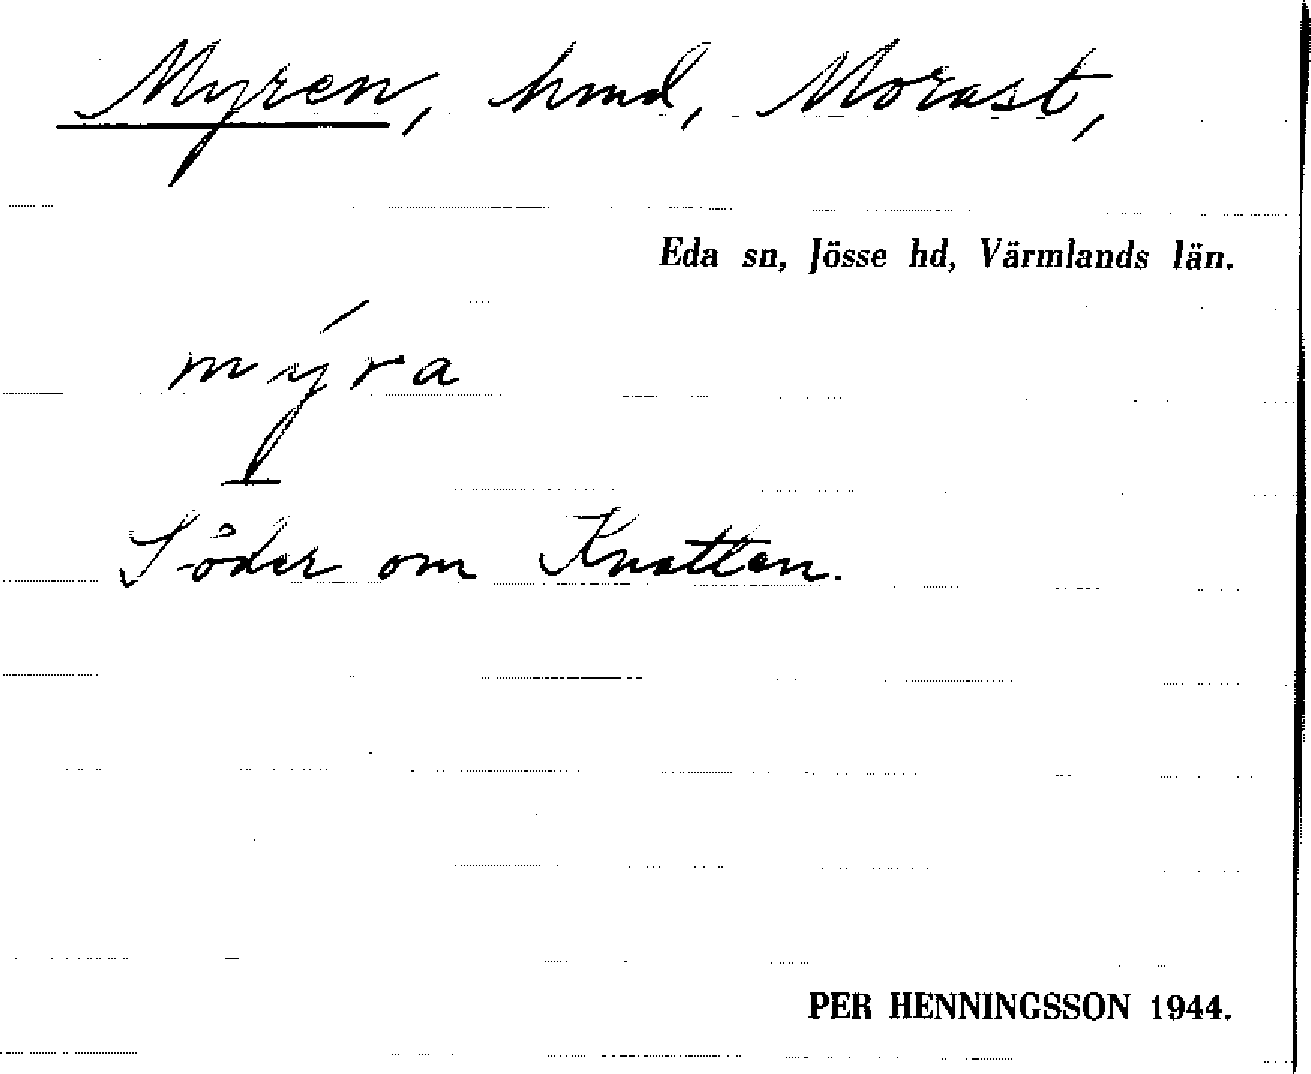 Myren, hmd, Morast,
Eda sn, Jösse hd, Värmlands län.
mýra
Söder om Knatten.
PER HENNINGSSON 1944.